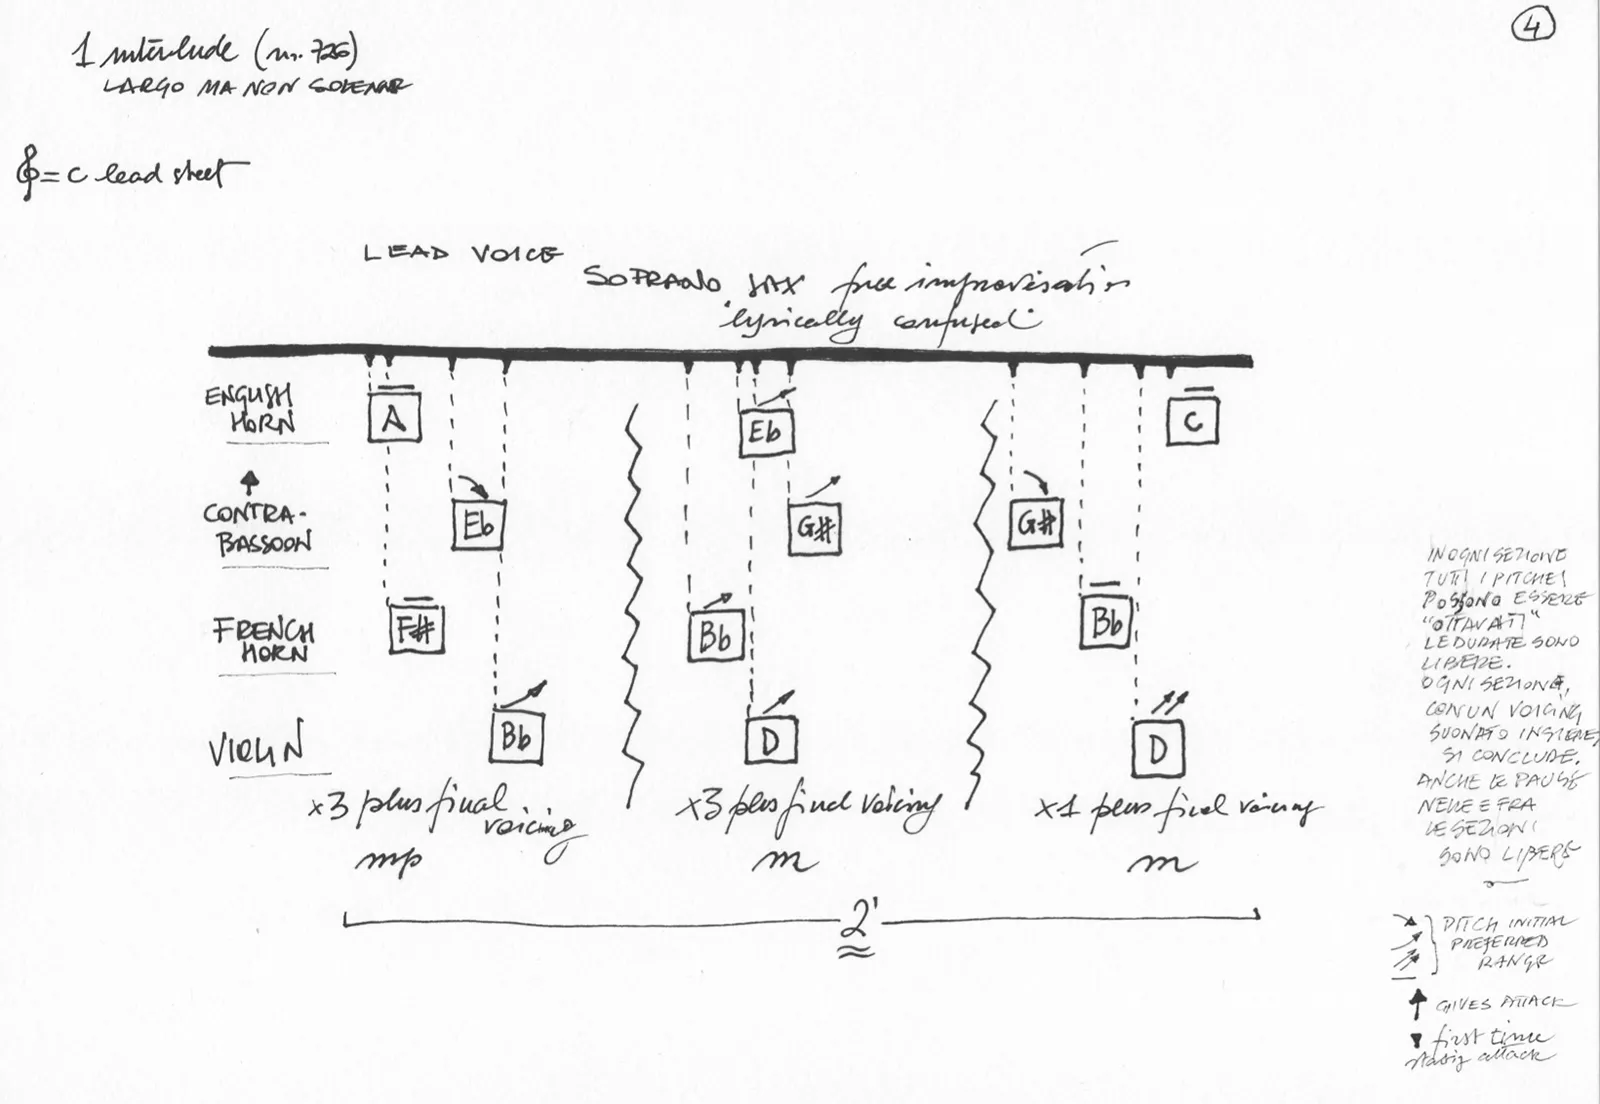 4
1 interlude (m. 726)
LARGO MA NON SOLENNE
= C lead sheet
LEAD VOICE
SOPRANO SAX free improvisation
"lyrically confused"
ENGLISH
HORN
A
Eb
C
CONTRA-
BASSOON
Eb
G#
G#
FRENCH
HORN
F#
Bb
Bb
VIOLIN
Bb
D
D
x3 plus final
voicing
x3 plus final voicing
x1 plus final voicing
mp
m
m
2'
IN OGNI SEZIONE
TUTTI I PITCHES
POSSONO ESSERE
"OTTAVATI"
LE DURATE SONO
LIBERE.
OGNI SEZIONE,
CON UN VOICING
SUONATO INSIEME,
SI CONCLUDE.
ANCHE LE PAUSE
NELLE E FRA
LE SEZIONI
SONO LIBERE
PITCH INITIAL
PREFERRED
RANGE
GIVES ATTACK
first time
attack